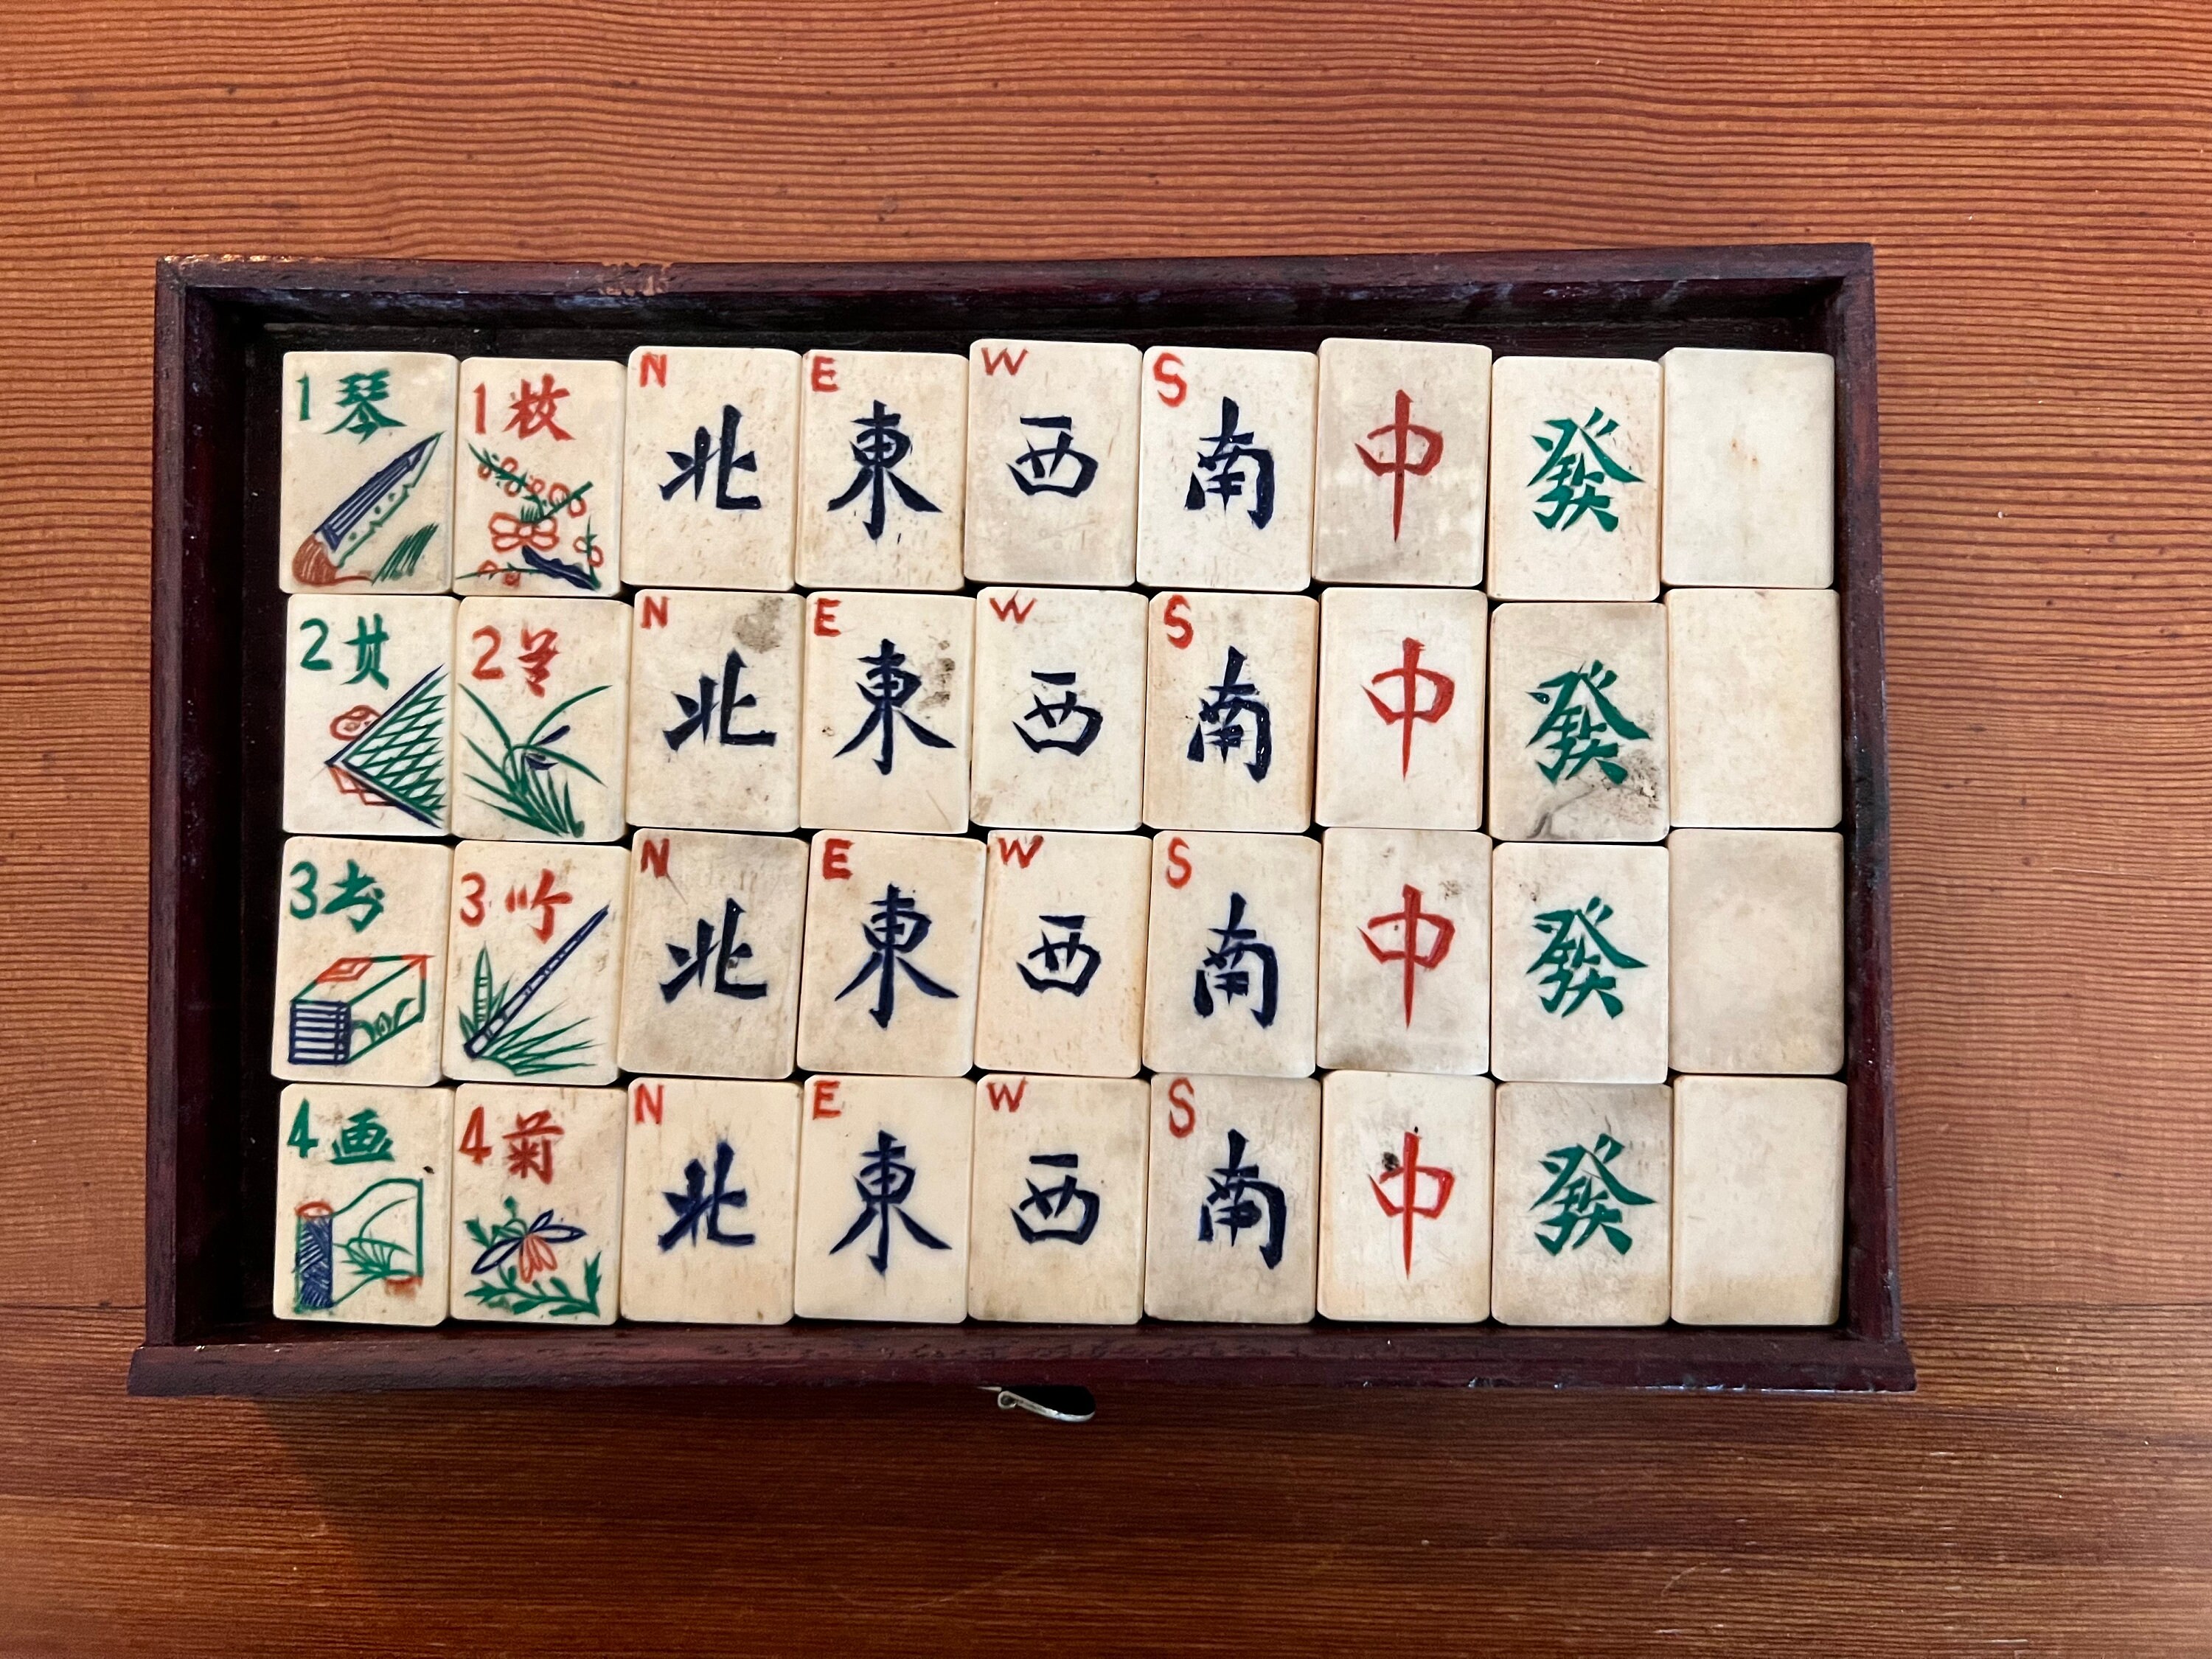 1琴 1枚 N北 E東 W西 S南 中 發
2 2 N北 E東 W西 S南 中 發
3书 3竹 N北 E東 W西 S南 中 發
4画 4菊 N北 E東 W西 S南 中 發